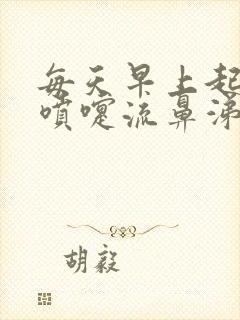 每天早上起
喷嚏流鼻涕
胡毅